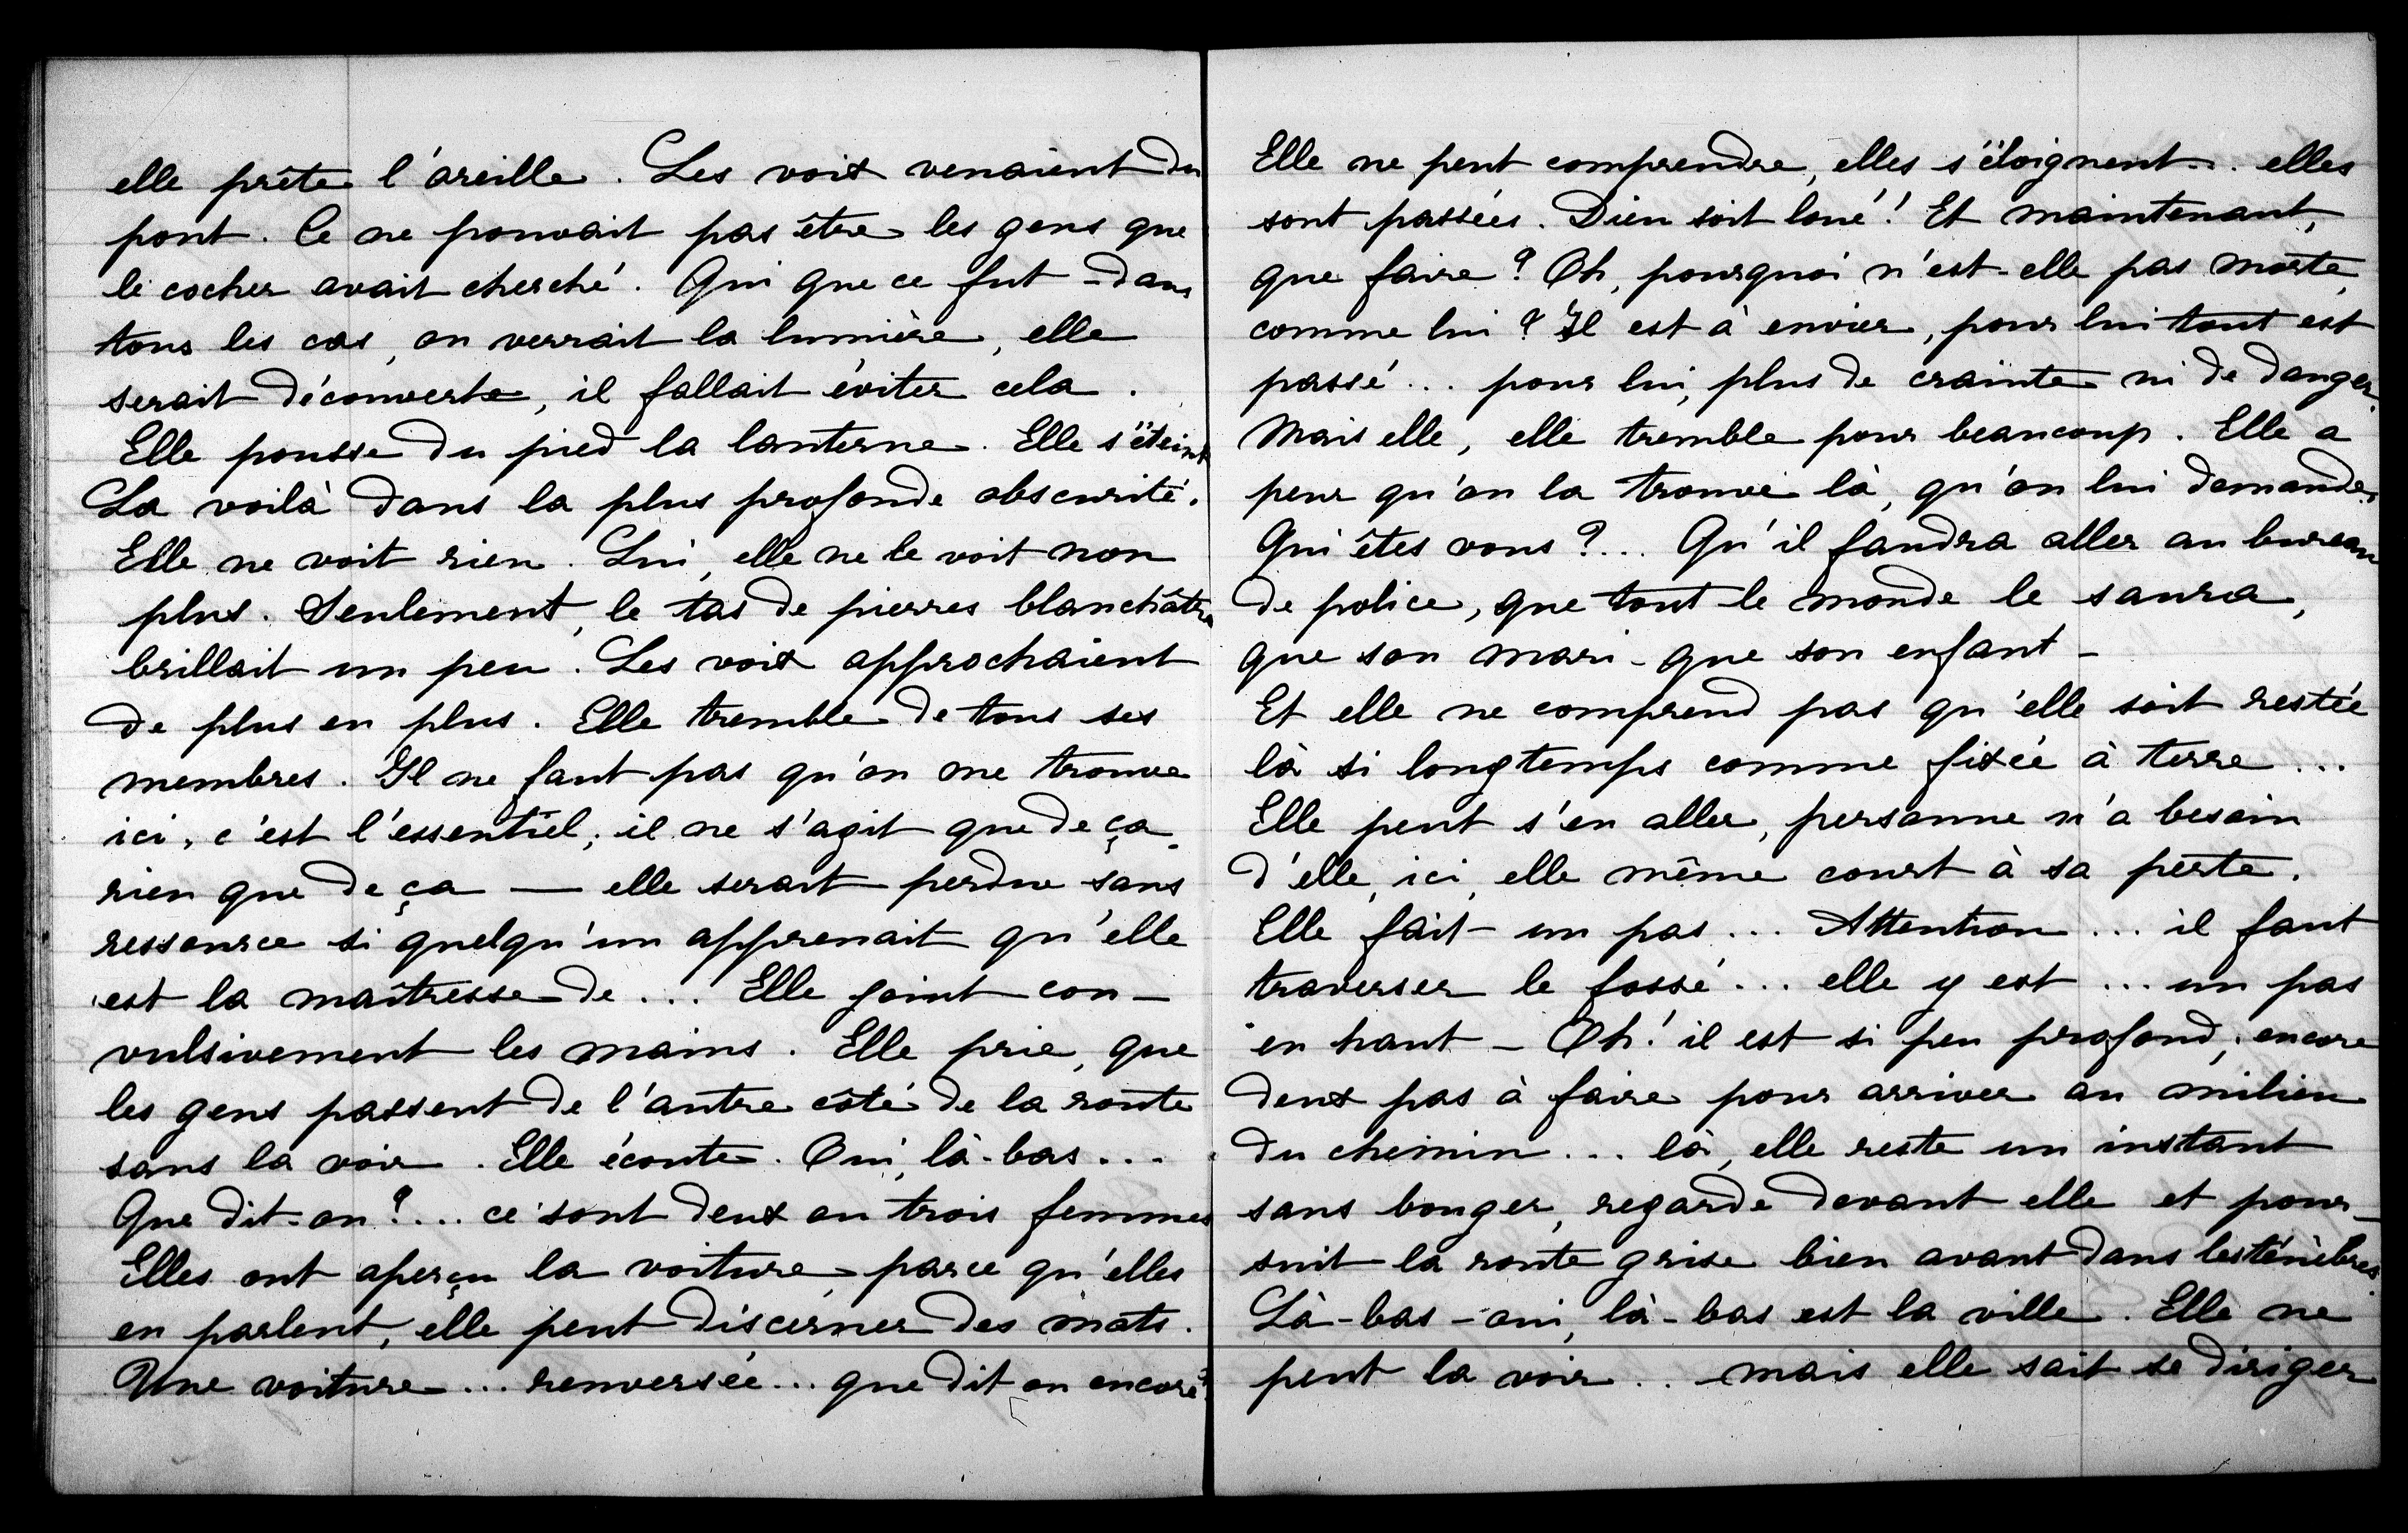 elle prête l'oreille. Les voix venaient du
pont. Ce ne pouvait pas être les gens que
le cocher avait cherché. Qui que ce fut - dans
tous les cas, on verrait la lumière, elle
serait découverte, il fallait éviter cela.
Elle pousse du pied la lanterne. Elle s'éteint
La voilà dans la plus profonde obscurité.
Elle ne voit rien. Lui, elle ne le voit non
plus. Seulement, le tas de pierres blanchâtre
brillait un peu. Les voix approchaient
de plus en plus. Elle tremble de tous ses
membres. Il ne faut pas qu'on me trouve
ici, c'est l'essentiel; il ne s'agit que de ça,
rien que de ça — elle serait perdue sans
ressource si quelqu'un apprenait qu'elle
est la maîtresse de ... Elle joint con-
vulsivement les mains. Elle prie, que
les gens passent de l'autre côté de la route
sans la voir. Elle écoute. Oui, là-bas...
Que dit-on?... ce sont deux ou trois femmes
Elles ont aperçu la voiture, parce qu'elles
en parlent, elle peut discerner des mots.
Une voiture... renversée... que dit on encore?
Elle ne peut comprendre, elles s'éloignent... elles
sont passées. Dieu soit loué! Et maintenant,
que faire? Oh, pourquoi n'est-elle pas morte,
comme lui? Il est à envier, pour lui tout est
passé... pour lui, plus de crainte ni de danger.
Mais elle, elle tremble pour beaucoup. Elle a
peur qu'on la trouve là, qu'on lui demande:
Qui êtes vous?... Qu'il faudra aller au bureau
de police, que tout le monde le saura,
que son mari - que son enfant -
Et elle ne comprend pas qu'elle soit restée
là si longtemps comme fixée à terre...
Elle peut s'en aller, personne n'a besoin
d'elle, ici, elle même court à sa perte.
Elle fait un pas... Attention... il faut
traverser le fossé... elle y est... un pas
en haut - Oh! il est si peu profond; encore
deux pas à faire pour arriver au milieu
du chemin... là, elle reste un instant
sans bouger, regarde devant elle et pour-
suit la route grise bien avant dans les ténèbres.
Là-bas - oui, là-bas est la ville. Elle ne
peut la voir... mais elle sait se diriger